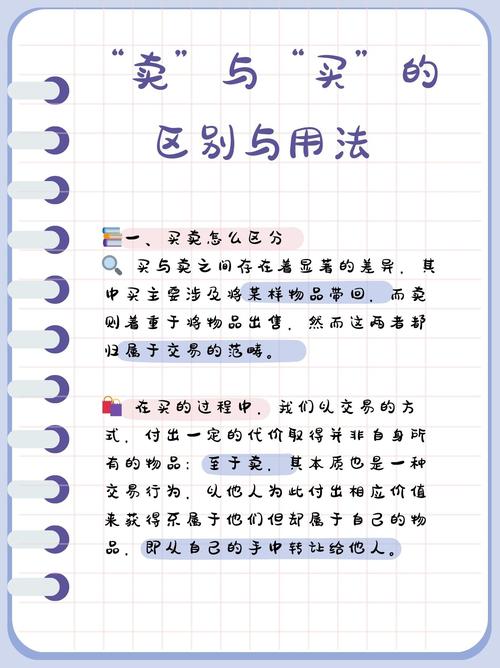 “卖”与“买”的
区别与用法
一、买卖怎么区分
买与卖之间存在着显著的差异，其
中买主要涉及将某样物品带回，而卖
则着重于将物品出售，然而这两者都
归属于交易的范畴。
在买的过程中，我们以交易的方
式，付出一定的代价取得并非自身所
有的物品；至于卖，其本质也是一种
交易行为，以他人为此付出相应价值
来获得不属于他们但却属于自己的物
品，即从自己的手中转让给他人。